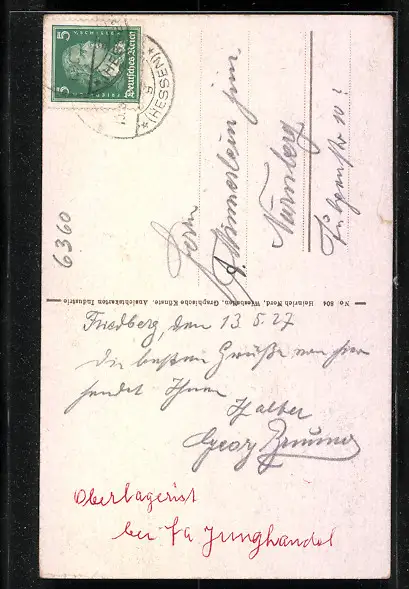 5 V. SCHILLER 5
Deutsches Reich
(HESSEN)
Herrn
Nürnberg
6360
No 804 Heinrich Nord, Wiesbaden, Graphische Künste, Ansichtskarten Industrie
Friedberg, den 13.5.27
Die besten Grüße von hier
sendet Ihnen
Georg
Oberlagerist
bei Fa Junghandel